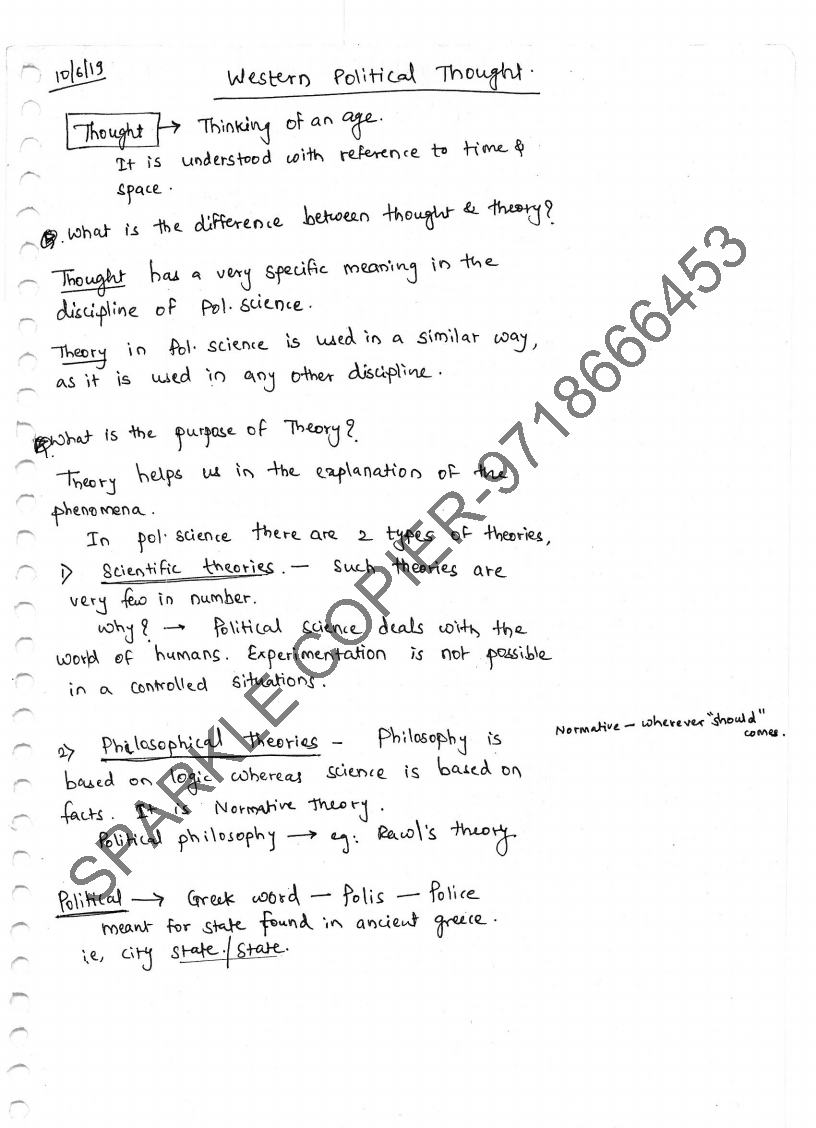 10/6/19
Western Political Thought.
Thought → Thinking of an age.
It is understood with reference to time &
space.
Q. What is the difference between thought & theory?
Thought has a very specific meaning in the
discipline of Pol. science.
Theory in Pol. science is used in a similar way,
as it is used in any other discipline.
Q. What is the purpose of Theory?
Theory helps us in the explanation of the
phenomena.
In pol. science there are 2 types of theories,
1) Scientific theories. — Such theories are
very few in number.
Why? → Political science deals with the
world of humans. Experimentation is not possible
in a controlled situations.
2) Philosophical theories - Philosophy is
based on logic whereas science is based on
facts. It is Normative Theory.
Political philosophy → eg: Rawl's theory.
Normative - wherever "should"
comes.
Political → Greek word - Polis - Police
meant for state found in ancient greece.
i.e, city state./state.
SPARKLE COPIER-9718666453